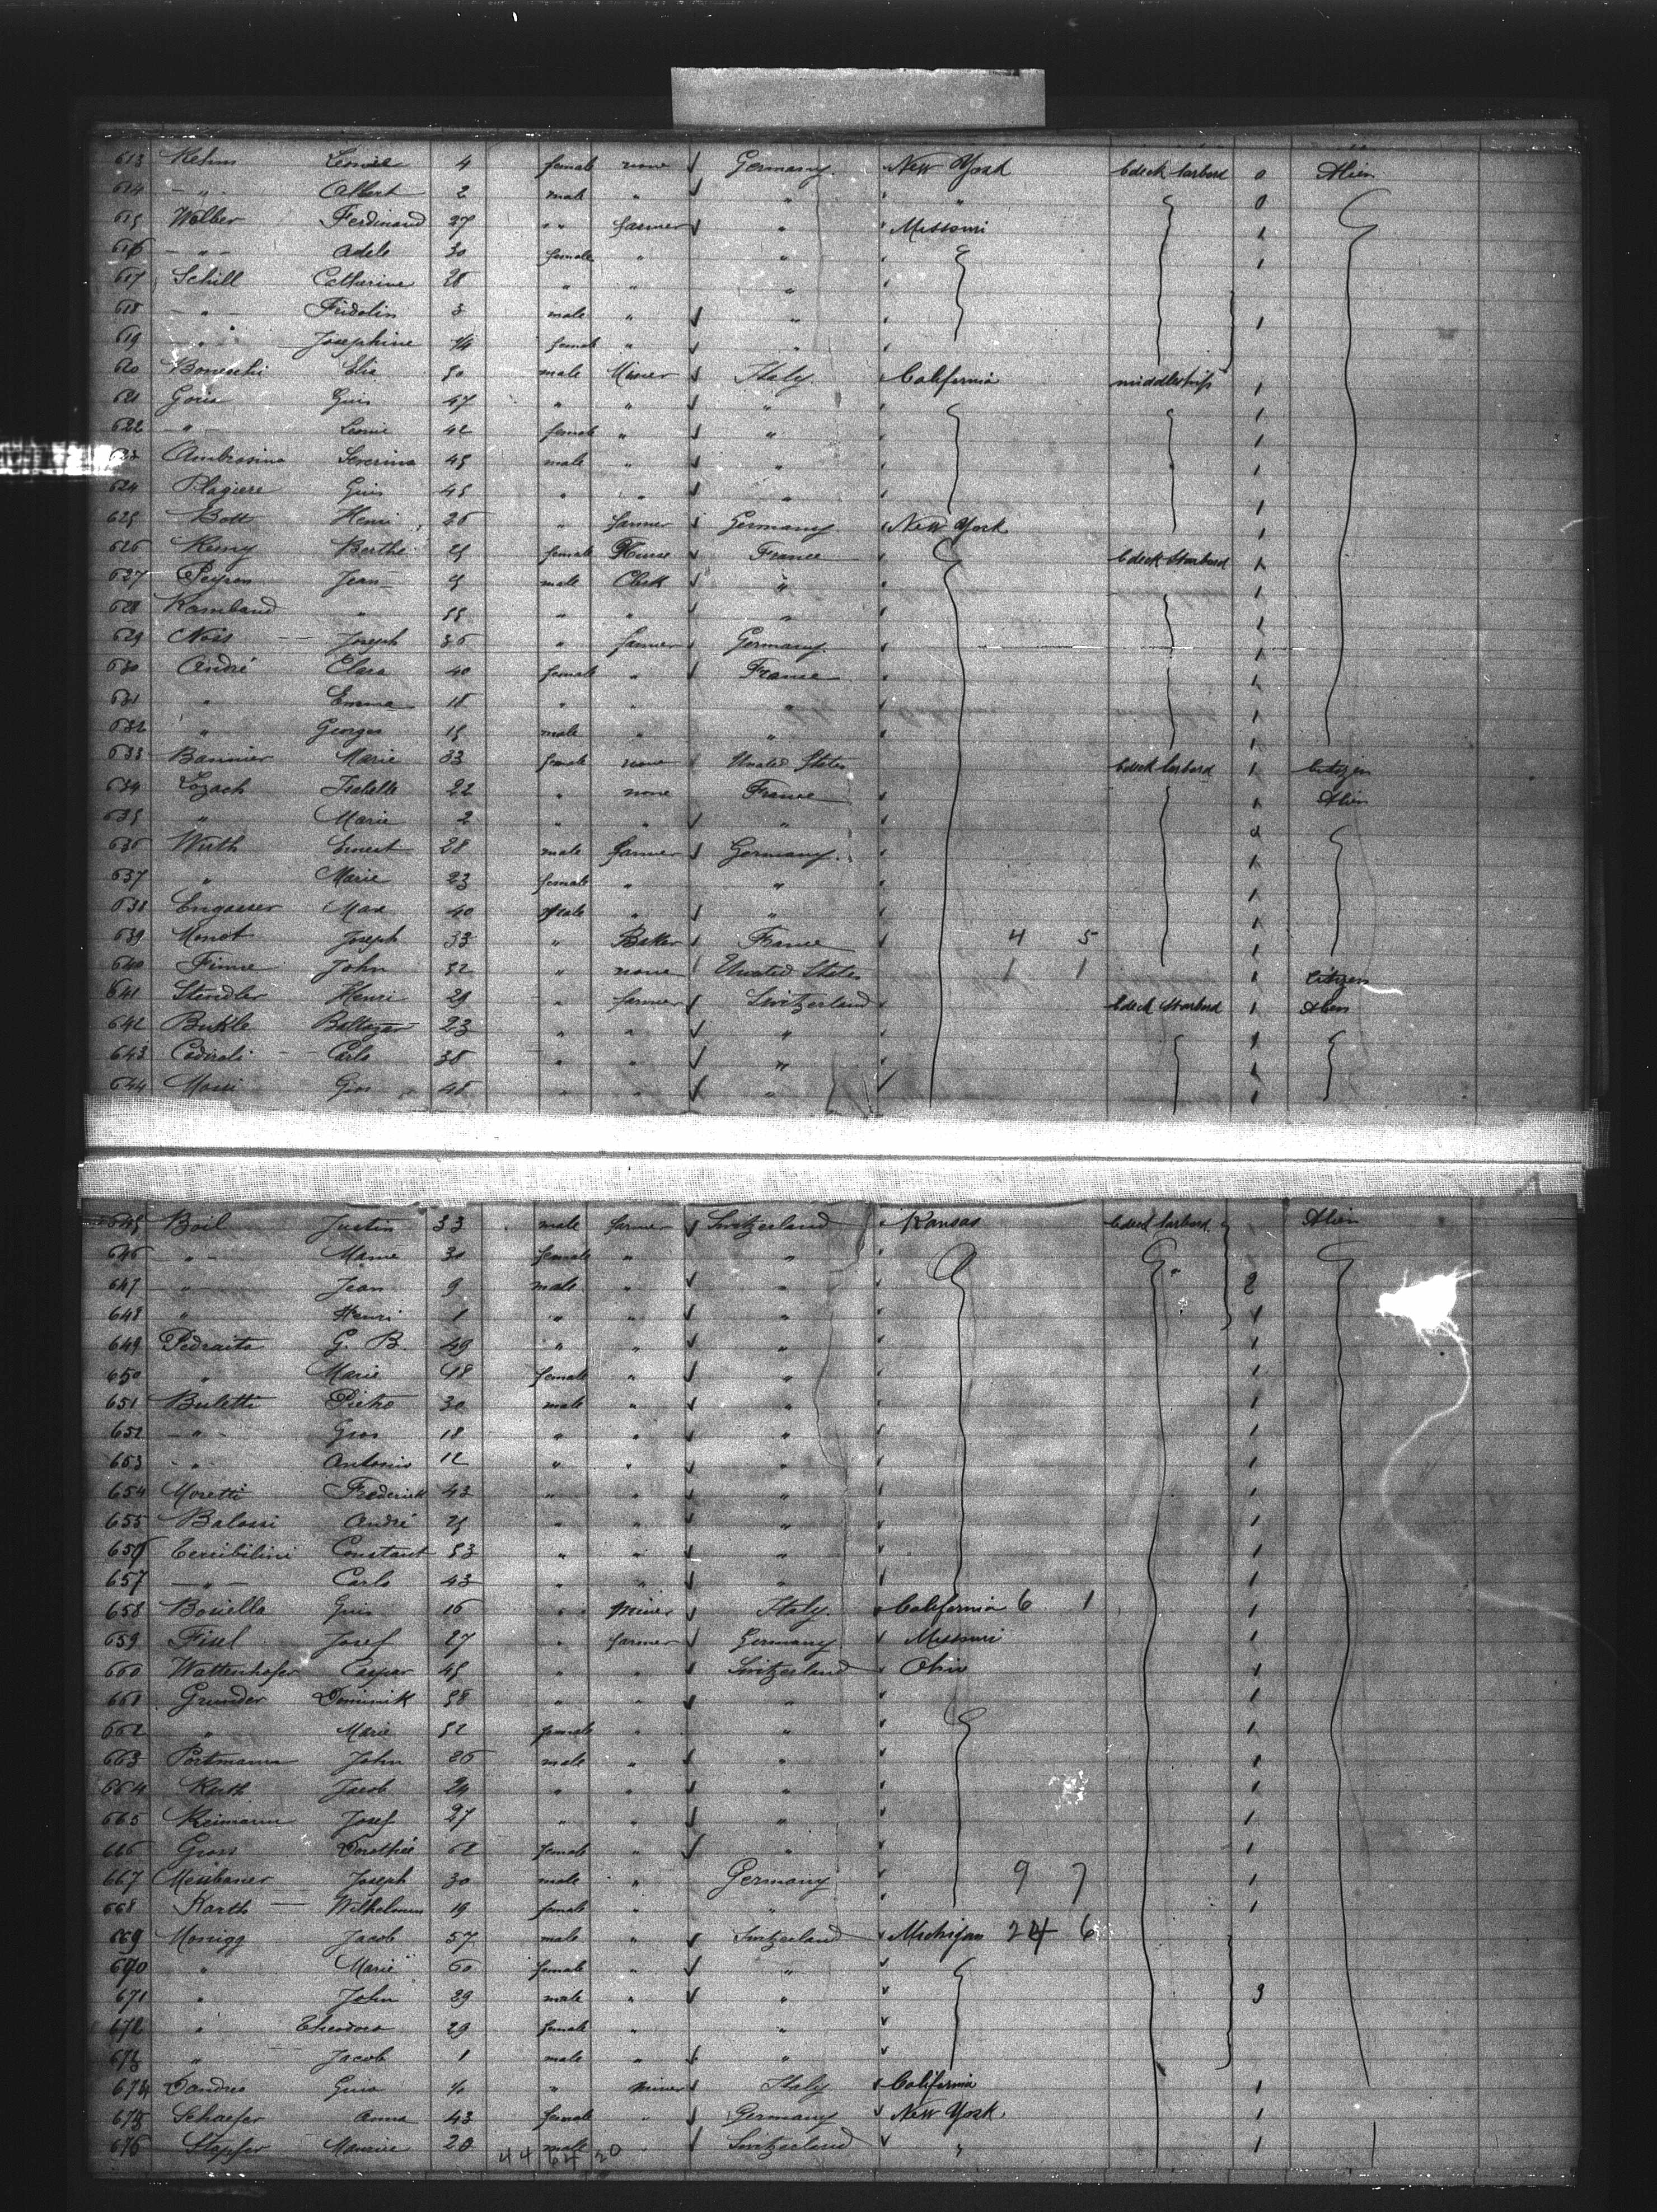 613 Kehm Leonie 4 female none Germany New York bdeck larbord 0 Alien
614 " Albert 2 male " " " 0
615 Walber Ferdinand 37 " farmer " Missouri 1
616 " Adele 30 female " " 1
617 Schill Catharine 28 " " "
618 " Fridolin 3 male " " 1
619 " Josephine female " "
620 Boneschi Elia 50 male Miner Italy California middleships 1
621 Goria Guis 47 " " " 1
622 " Leonie 42 female " " 1
623 Ambrosina Severina 45 male " " 1
624 Plagiere Guis 45 " " " 1
625 Bott Henri 26 " farmer Germany New York 1
626 Kieny Berthe 25 female Nurse France bdeck Starbord 1
627 Peyron Jean male Clerk " 1
628 Rambaud " 55 " " " 1
629 Nois Joseph 36 " farmer Germany 1
630 André Clara 40 female " France 1
631 " Emma 18 " " " 1
632 " Georges 15 male " " 1
633 Bannier Marie 33 female none United States bdeck larbord 1 Citizen
634 Lozach Isabelle 22 " none France 1 Alien
635 " Marie 2 " " "
636 Wirth Ernest 28 male farmer Germany 1
637 " Marie 23 female " " 1
638 Engasser Max 40 Male " " 1
639 Monot Joseph 33 " Baker France 4 5 1
640 Finne John 52 " none United States 1 1 1 Citizen
641 Stendler Henri 29 " farmer Switzerland bdeck Starbord 1 Alien
642 Bukle Baltazar 23 " " " 1
643 Cedirali Carlo 38 " " " 1
644 Massi Gios 48 " " " 1
645 Boil Justin 33 male farmer Switzerland Kansas bdeck larbord Alien
646 " Marie 30 female " "
647 " Jean 9 male " " 2
648 " Henri 1 " " " 1
649 Pedraita G. B. 49 " " " 1
650 " Marie 48 female " " 1
651 Buletti Pietro 30 male " " 1
652 " Gios 18 " " " 1
653 " Antonio 12 " " " 1
654 Moretti Frederick 43 " " " 1
655 Balassi André 25 " " " 1
656 Cerribilini Constant 53 " " " 1
657 " Carlo 43 " " " 1
658 Bosiella Guis 16 " Miner Italy California 6 1 1
659 Fisel Josef 27 " farmer Germany Missouri 1
660 Wattenhofer Caspar 45 " " Switzerland Ohio 1
661 Grunder Dominik 58 " " " 1
662 " Marie 52 female " " 1
663 Portmann John 26 male " " 1
664 Kuth Jacob 24 " " " 1
665 Reimann Josef 27 " " " 1
666 Gross Dorothée 62 female " " 1
667 Meisbauer Joseph 30 male " Germany 9 7 1
668 Karth Wilhelmine 19 female " " 1
669 Monigg Jacob 57 male " Switzerland Michigan 24 6
670 " Marie 60 female " "
671 " John 29 male " " 3
672 " Theodora 29 female " "
673 " Jacob 1 male " "
674 Dandres Guis 40 " miner Italy California 1
675 Schaefer Anna 43 female " Germany New York 1
676 Stapfer Maurice 20 male " Switzerland " 1
44 64 20